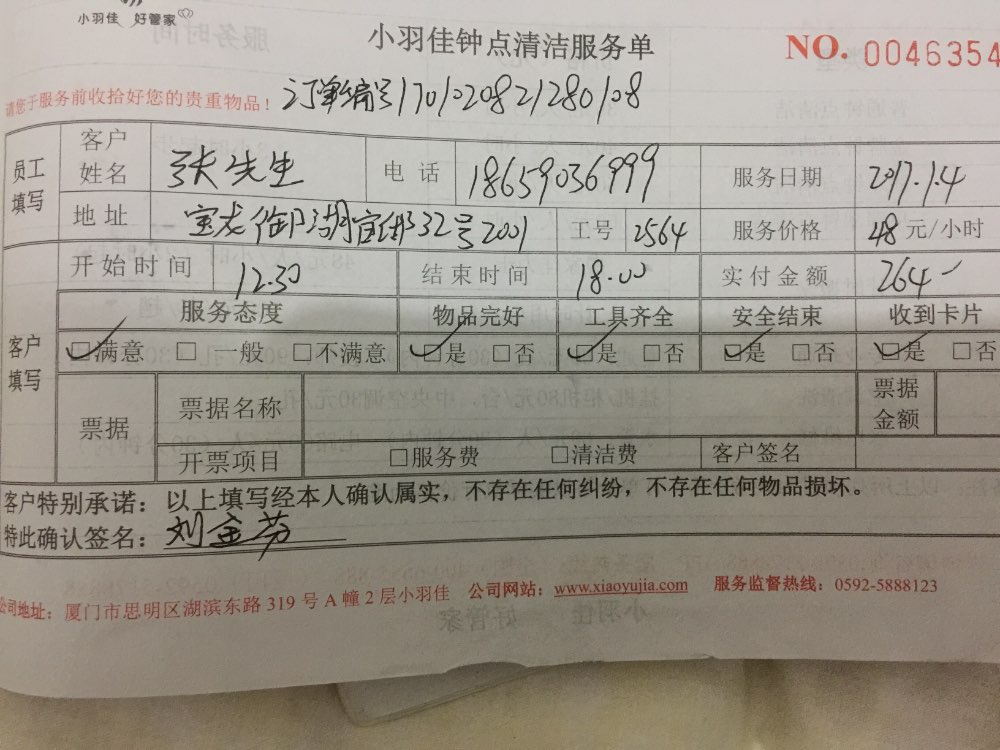 小羽佳 好管家
小羽佳钟点清洁服务单
NO. 0046354
请您于服务前收拾好您的贵重物品! 订单编号1701020821280108
员工填写 客户姓名 张先生 电话 18659036999 服务日期 2017.1.4
地址 宝龙御湖官邸332号2001 工号 2564 服务价格 48元/小时
客户填写 开始时间 12.30 结束时间 18.00 实付金额 264
服务态度 物品完好 工具齐全 安全结束 收到卡片
☑满意 □一般 □不满意 ☑是 □否 ☑是 □否 ☑是 □否 ☑是 □否
票据 票据名称 票据金额
开票项目 □服务费 □清洁费 客户签名
客户特别承诺:以上填写经本人确认属实,不存在任何纠纷,不存在任何物品损坏。
特此确认签名:刘金芬
公司地址:厦门市思明区湖滨东路 319 号 A 幢 2 层小羽佳 公司网站:www.xiaoyujia.com 服务监督热线:0592-5888123